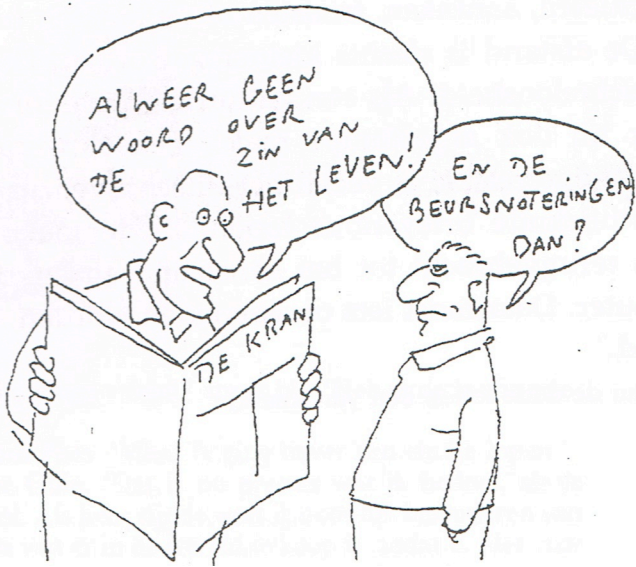 ALWEER GEEN
WOORD OVER
DE ZIN VAN
HET LEVEN!
EN DE
BEURSNOTERINGEN
DAN?
DE KRAN